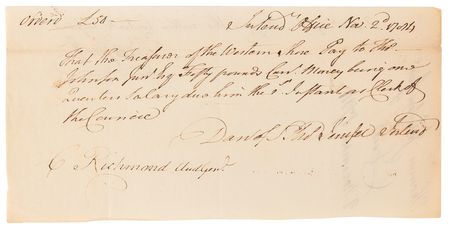 Orderd £50 — Intend.ts Office Nov 2d 1784
That the Treasurer of the Western Shore Pay to Tho.
Johnson Junr. Fifty pounds Curr. Money being one
Quarters Salary due him the Instant as Clerk of
the Council
Dan of St Tho Jenifer Intend
C Richmond Aud Genl.